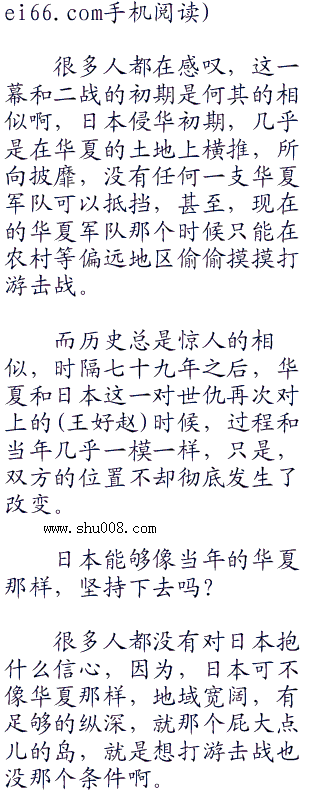 ei66.com手机阅读)
很多人都在感叹，这一
幕和二战的初期是何其的相
似啊，日本侵华初期，几乎
是在华夏的土地上横推，所
向披靡，没有任何一支华夏
军队可以抵挡，甚至，现在
的华夏军队那个时候只能在
农村等偏远地区偷偷摸摸打
游击战。
而历史总是惊人的相
似，时隔七十九年之后，华
夏和日本这一对世仇再次对
上的(王好赵)时候，过程和
当年几乎一模一样，只是，
双方的位置不却彻底发生了
改变。
www.shu008.com
日本能够像当年的华夏
那样，坚持下去吗？
很多人都没有对日本抱
什么信心，因为，日本可不
像华夏那样，地域宽阔，有
足够的纵深，就那个屁大点
儿的岛，就是想打游击战也
没那个条件啊。